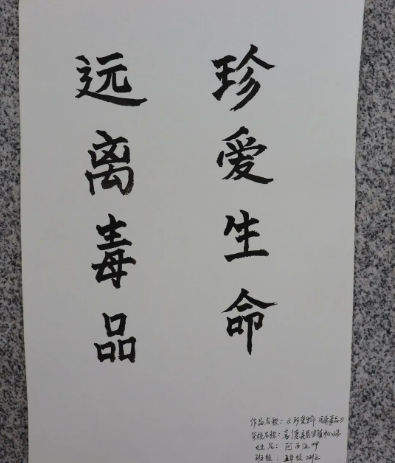 珍爱生命
远离毒品
作品名称：《珍爱生命 远离毒品》
学校名称：
姓名：
班级：